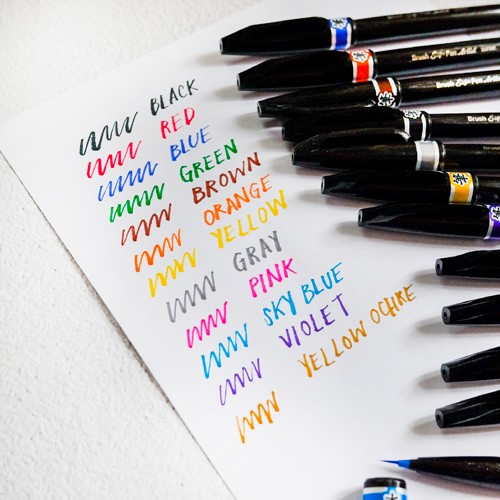 BLACK
RED
BLUE
GREEN
BROWN
ORANGE
YELLOW
GRAY
PINK
SKY BLUE
VIOLET
YELLOW OCHRE
Brush Sign Pen Artist
Brush Sign Pen Artist
Brush Sign Pen
Brush Sign